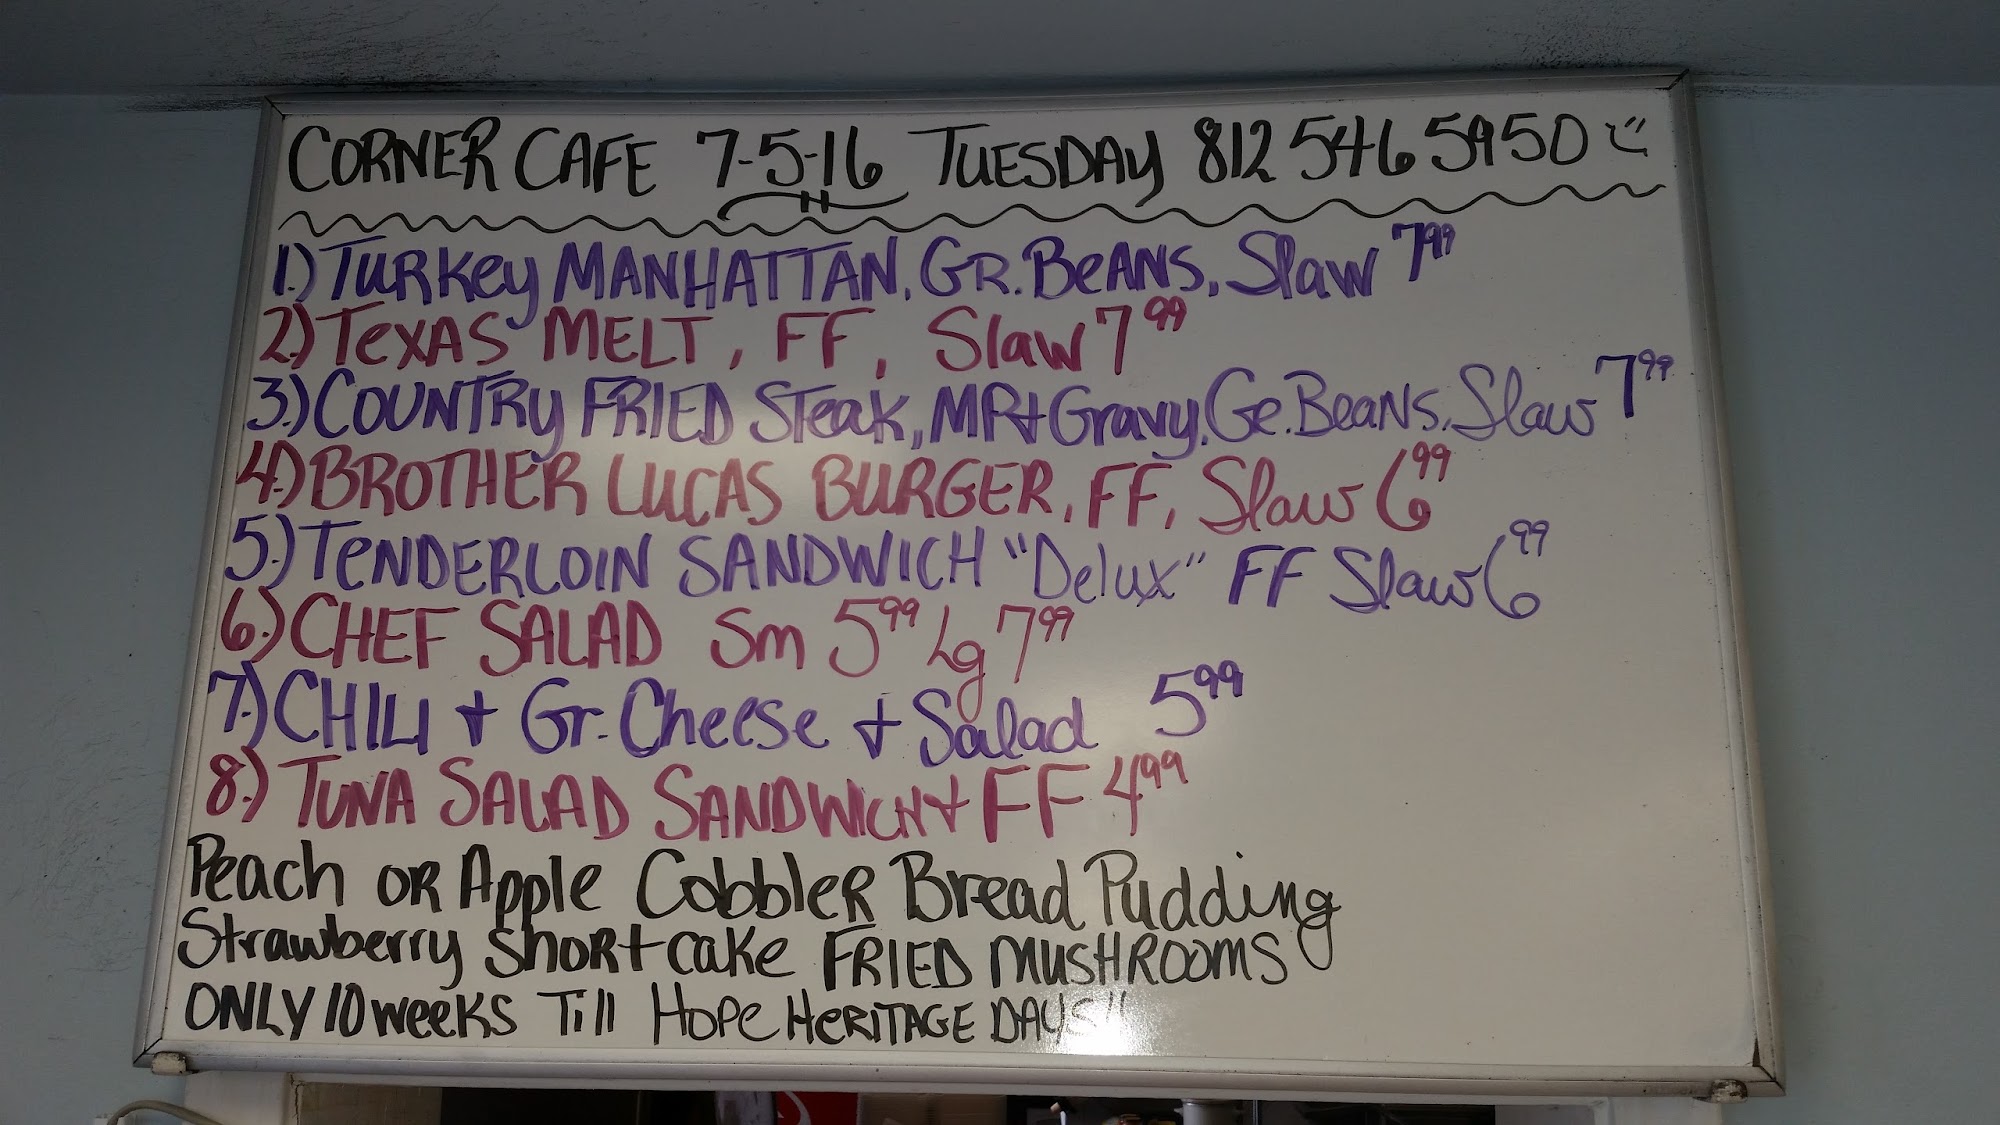 CORNER CAFE 7-5-16 TUESDAY 812 546 5950
1.) TURKey MANHATTAN, GR. BeANS, Slaw 799
2.) TeXAS MELT, FF, Slaw 7 99
3.) COUNTRy FRIED STeak, MP+Gravy, Ge. BeaNs, Slaw 7 99
4.) BROTHER LUCAS BURGER, FF, Slaw 6 99
5.) TeNDERLOIN SANDWICH "Delux" FF Slaw 6 99
6.) CHEF SALAD Sm 5 99 Lg 7 99
7.) CHILI + Gr. Cheese + Salad 5 99
8.) TUNA SALAD SANDWICH + FF 4 99
Peach OR Apple CobbleR Bread Pudding
Strawberry ShoRtcake FRIED MUSHROOMS
ONLY 10 weeKS Till HOPe HeRITAGE DAYS!!